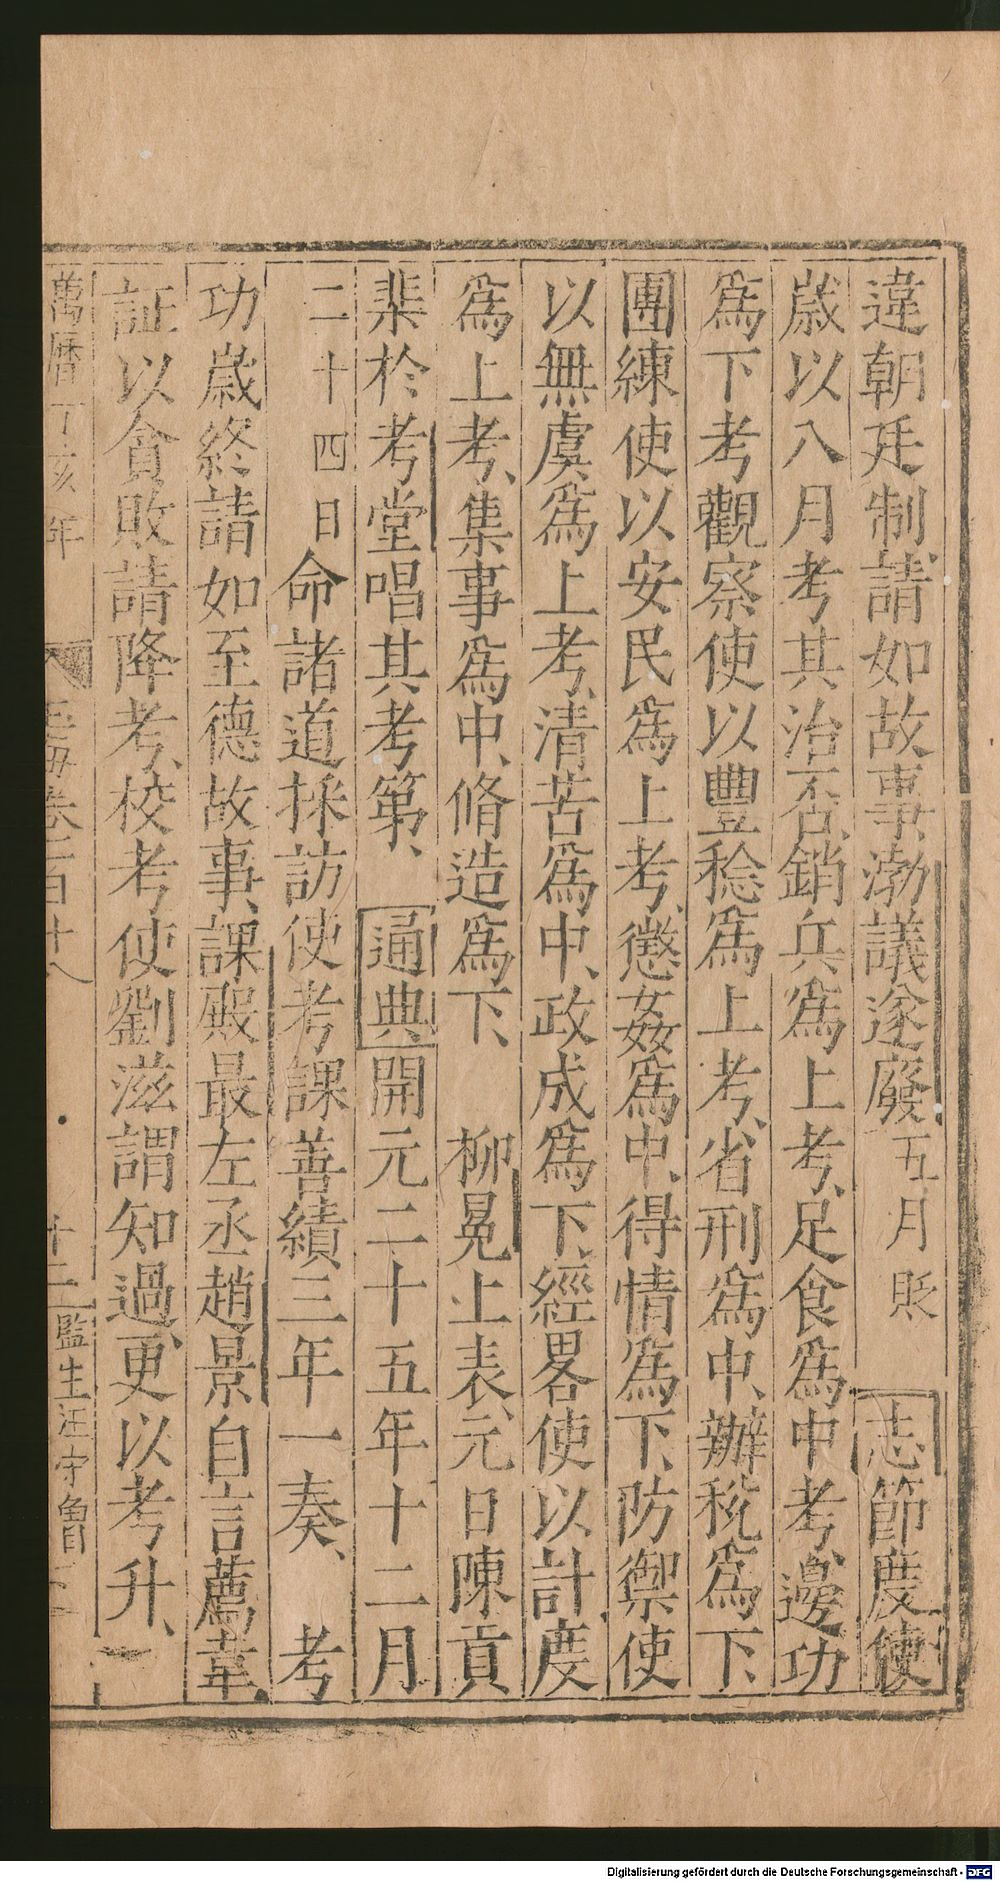 違朝廷制請如故事渤議遂廢五月貶　志節度使
歲以八月考其治否銷兵爲上考足食爲中考邊功
爲下考觀察使以豐稔爲上考省刑爲中辦稅爲下
團練使以安民爲上考懲姦爲中得情爲下防禦使
以無虞爲上考清苦爲中政成爲下經畧使以計度
爲上考集事爲中脩造爲下　柳冕上表元日陳貢
棐於考堂唱其考第　通典開元二十五年十二月
二十四日命諸道採訪使考課善績三年一奏　考
功歲終請如至德故事課殿最左丞趙景自言薦韋
証以貪敗請降考校考使劉滋謂知過更以考升
萬曆丁亥年　玉海卷一百十八　十二　監生汪守魯
Digitalisierung gefördert durch die Deutsche Forschungsgemeinschaft - DFG